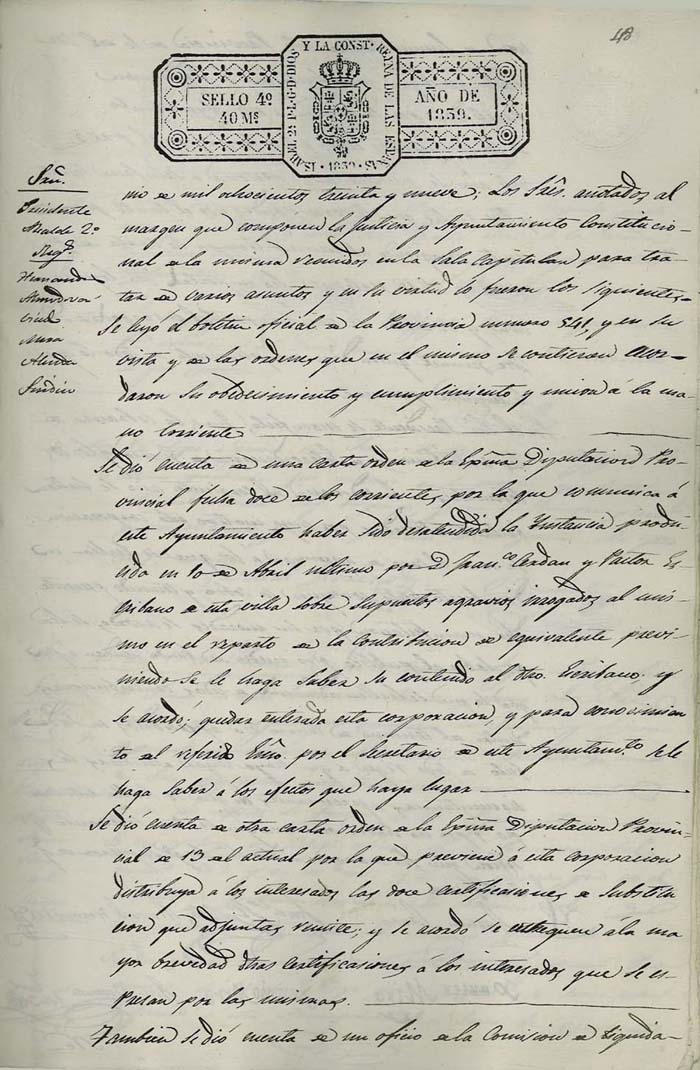 48
ISABEL 2ª P. L. G. D. DIOS Y LA CONST. REYNA DE LAS ESPAÑAS
SELLO 4º
40 Mˢ
AÑO DE
1839.
1839
Sres.
Presidente
Alcalde 2.º
Reg.s
Hernandez
Almodovar
Vicedo
Mira
Sindico
nio de mil ochocientos treinta y nueve; Los Sres. anotados al
margen que componen la Justicia y Ayuntamiento Constitucio-
nal de la misma reunidos en la Sala Capitular para tra-
tar de varios asuntos y en su virtud lo fueron los siguientes.
Se leyó el boletin oficial de la Provincia numero 541, y en su
vista y de las ordenes que en el mismo se contienen acor-
daron su obedecimiento y cumplimiento y union á la ma-
no corriente
Se dió cuenta de una carta orden de la Exma Diputacion Pro-
vincial fecha doce de los corrientes, por la que comunica á
este Ayuntamiento haber sido desatendida la Instancia produ-
cida en 10 de Abril ultimo por D. Fran.co Cerdan y Pastor Es-
cribano de esta villa sobre supuestos agravios irrogados al mis-
mo en el reparto de la contribucion de equivalente previ-
niendo se le haga saber su contenido al dho. Escribano; y
se acordó; quedar enterada esta corporacion, y para conocimien-
to del referido Esno. por el Secretario de este Ayuntam.to se le
haga saber á los efectos que haya lugar
Se dió cuenta de otra carta orden de la Exma Diputacion Provin-
cial de 13 del actual por la que previene á esta corporacion
distribuya á los interesados las doce certificaciones de substitu-
cion que adjuntas remite; y se acordó se entreguen á la ma-
yor brevedad dhas certificaciones á los interesados que se es-
presan por las mismas.
Tambien se dió cuenta de un oficio de la Comision de Liquida-